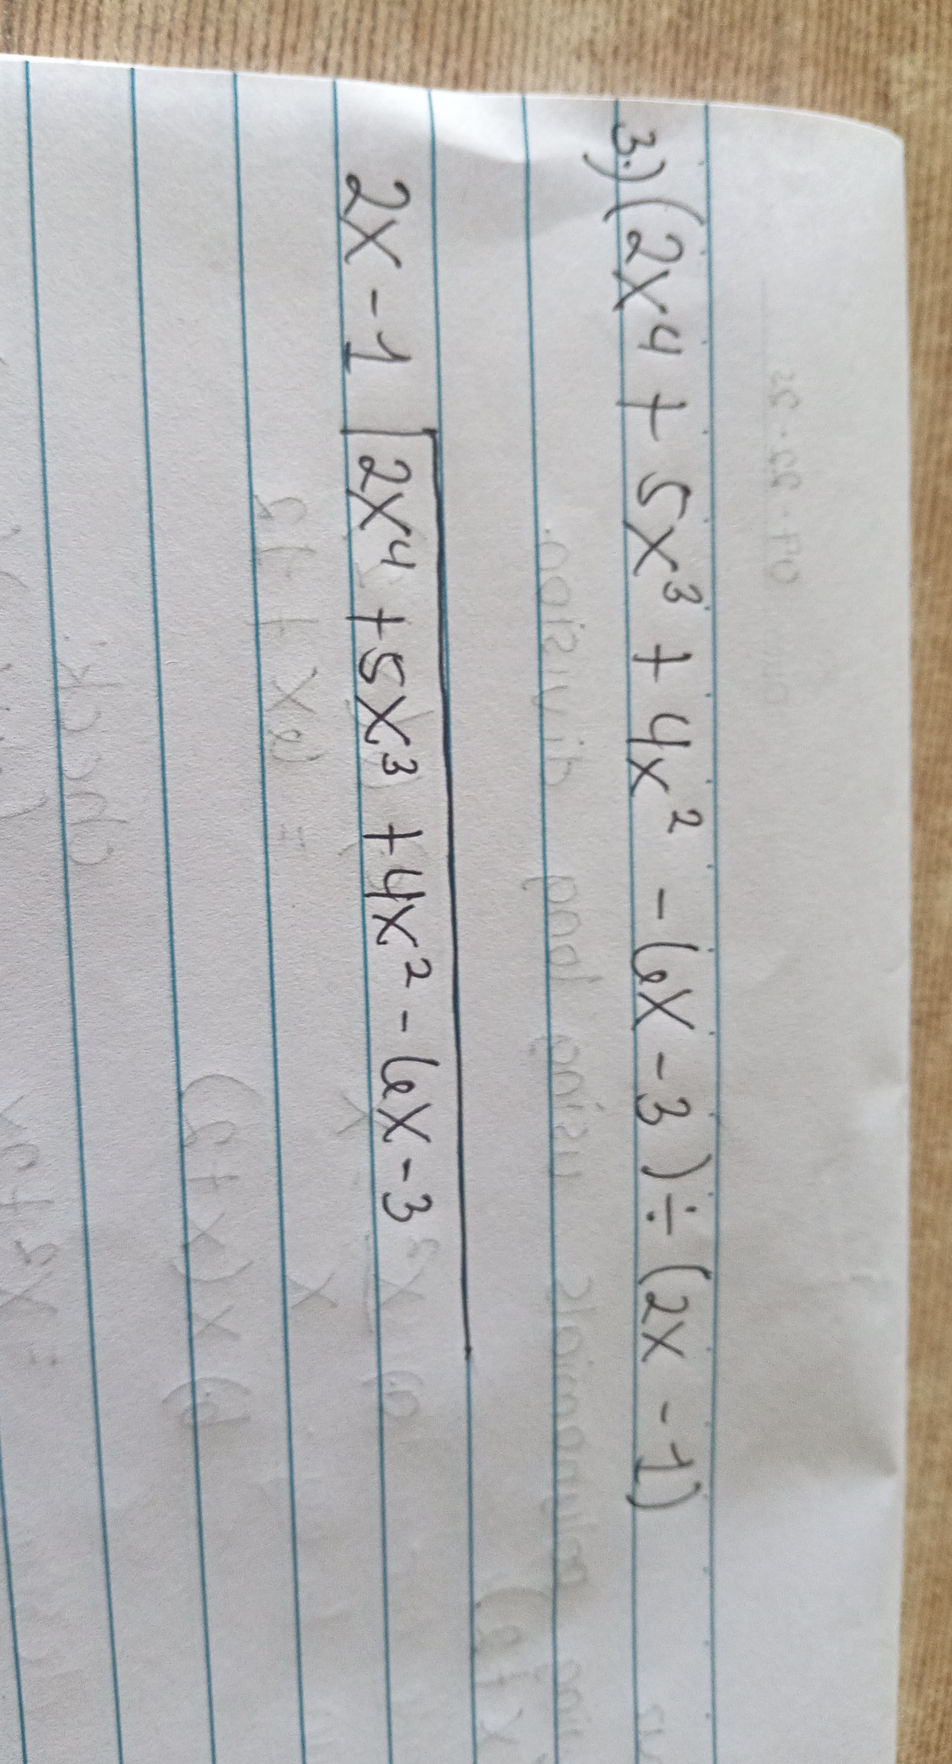 3.) (2x⁴ + 5x³ + 4x² - 6x - 3) ÷ (2x - 1)
2x - 1 | 2x⁴ + 5x³ + 4x² - 6x - 3